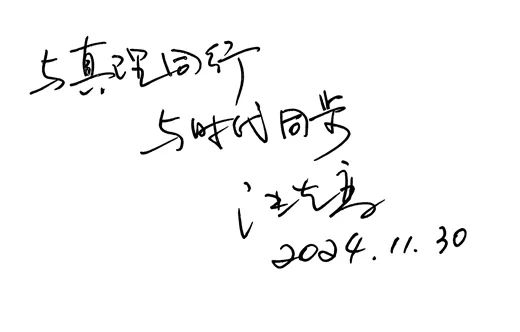 与真理同行
与时代同步
2024.11.30